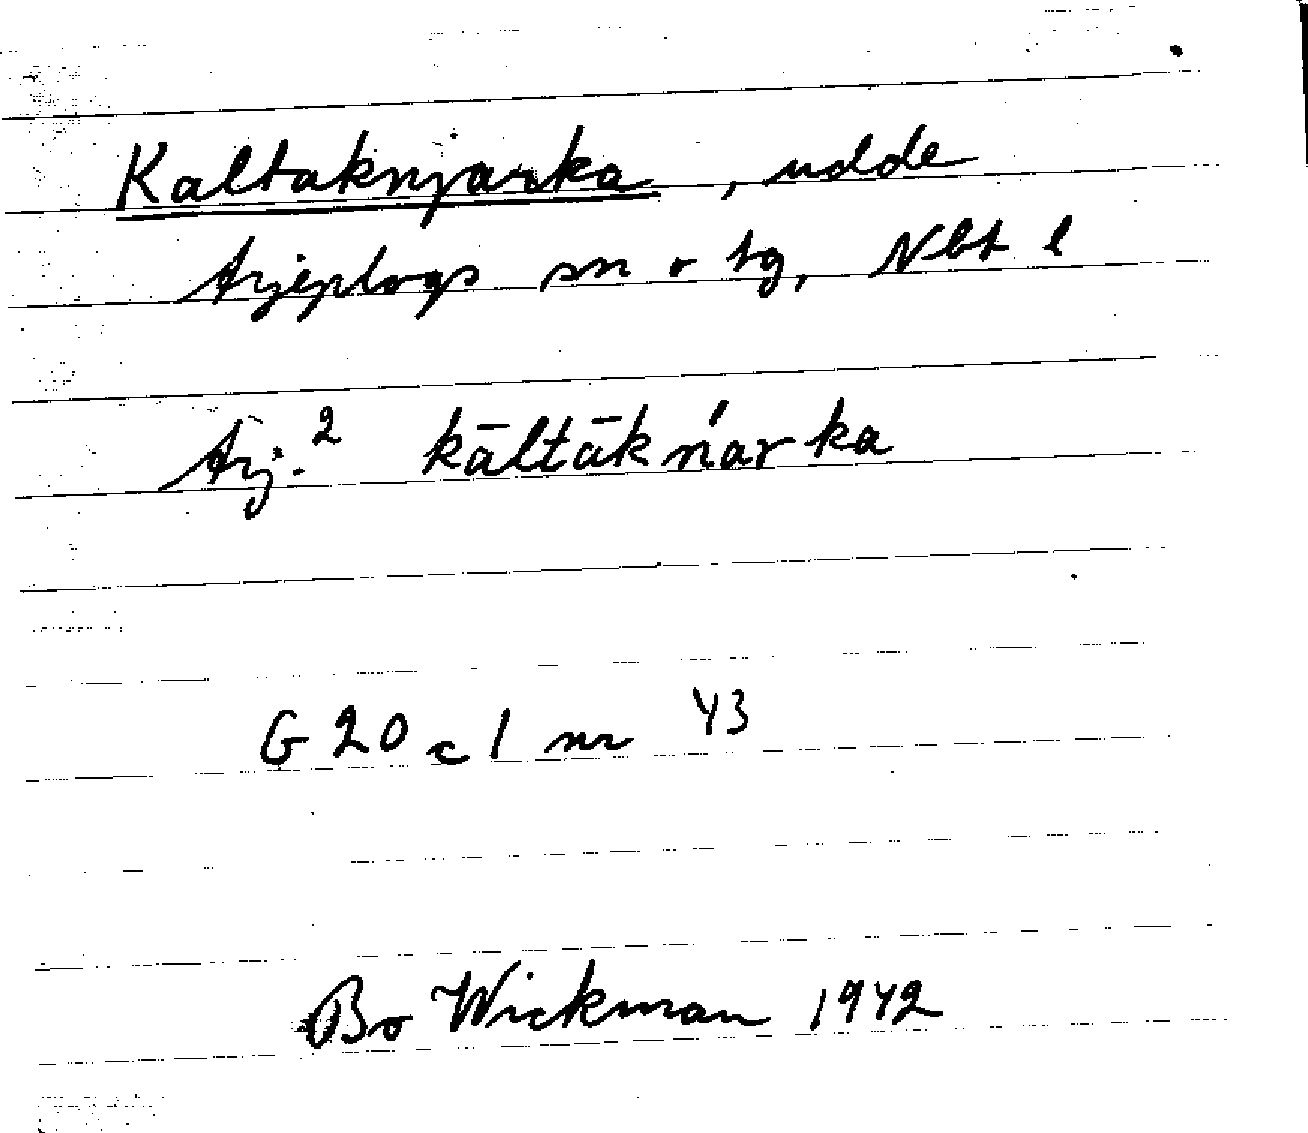 Kaltaknjarka, udde
Arjeplogs sn o tg, Nbt l
Arj.² kāltākńarka
G 20 c 1 nr 43
Bo Wickman 1942